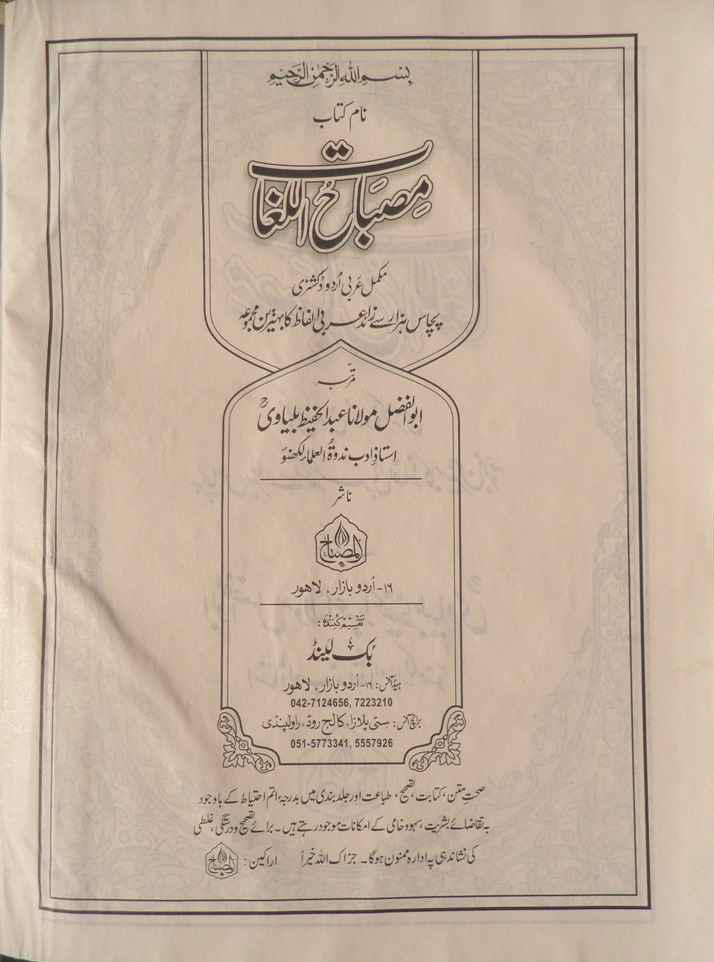 بِسْمِ اللهِ الرَّحْمٰنِ الرَّحِيْمِ
نام کتاب
مِصبَاحُ اللّغَات
مکمل عربی اُردو ڈکشنری
پچاس ہزار سے زائد عربی الفاظ کا بہترین مجموعہ
مرتبہ
ابوالفضل مولانا عبدالحفیظ بلیاویؒ
استاذِ ادب ندوۃُ العلماء لکھنؤ
ناشر
المصباح
۱۶- اُردو بازار، لاہور
تقسیم کنندہ:
بُک لینڈ
ہیڈ آفس: ۱۶- اُردو بازار، لاہور
042-7124656, 7223210
برانچ آفس: سٹی پلازا، کالج روڈ، راولپنڈی
051-5773341, 5557926
صحتِ متن، کتابت، تصحیح، طباعت اور جلد بندی میں بدرجۂ اتم احتیاط کے باوجود
بہ تقاضائے بشریت، سہو و خامی کے امکانات موجود رہتے ہیں۔ برائے تصحیح و درستگی، غلطی
کی نشاندہی پہ ادارہ ممنون ہوگا۔ جزاک اللہ خیراً اراکین: المصباح